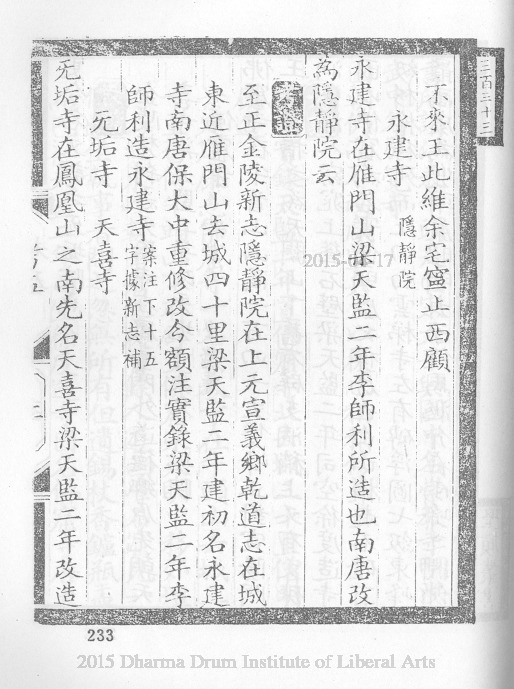 三百三十三
不來王此維余宅窀止西顧
永建寺 隱靜院
永建寺在雁門山梁天監二年李師利所造也南唐改
為隱靜院云
考證
至正金陵新志隱靜院在上元宣義鄉乾道志在城
東近雁門山去城四十里梁天監二年建初名永建
寺南唐保大中重修改今額注實錄梁天監二年李
師利造永建寺案注下十五字據新志補
无垢寺 天喜寺
无垢寺在鳳凰山之南先名天喜寺梁天監二年改造
233
2015 Dharma Drum Institute of Liberal Arts